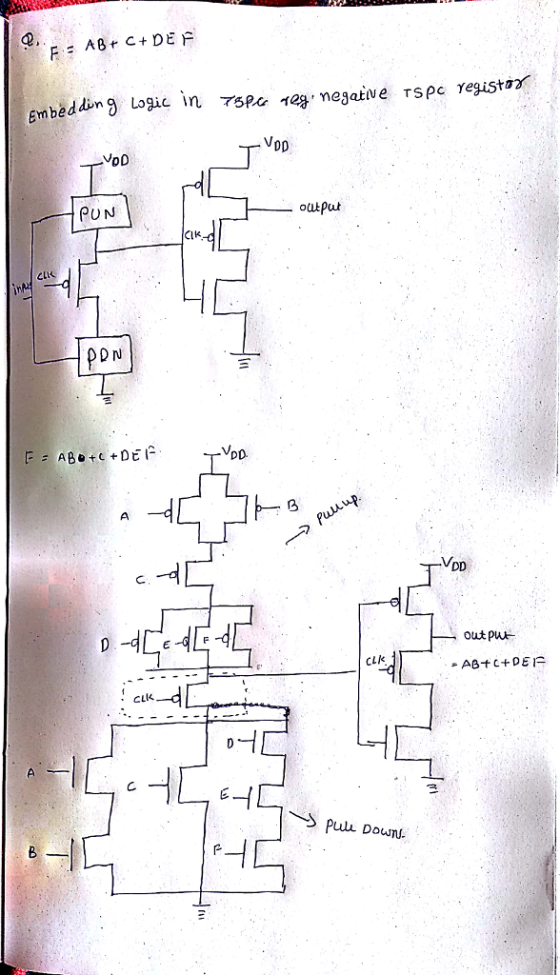 Q.
F = AB + C + DEF
Embedding Logic in TSPC reg. negative TSPC register
VDD
VDD
PUN
output
CLK
CLK
PDN
F = AB + C + DEF
VDD
A
B
pull up.
C
VDD
D
E
F
output
CLK
= AB+C+DEF
CLK
D
A
C
E
Pull Down.
B
F